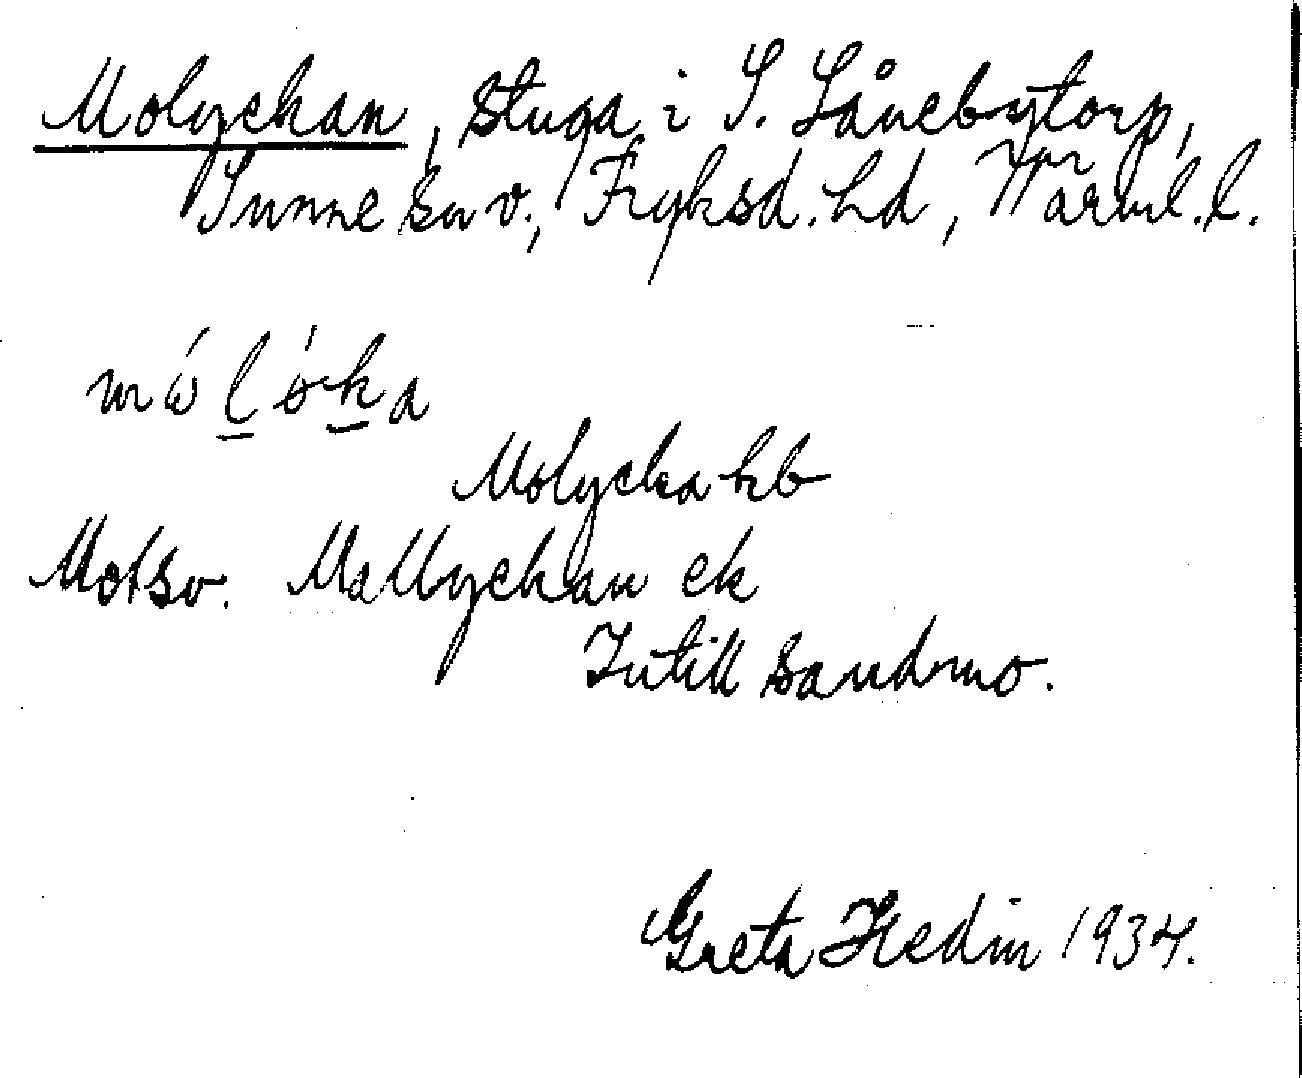 Molyckan, stuga i S. Lånebytorp,
Sunne snv., Fryksd. hd, Värml. l.
Molycka hb
Motsv. Mallyckan ek
Intill Sandmo.
Greta Hedin 1934.